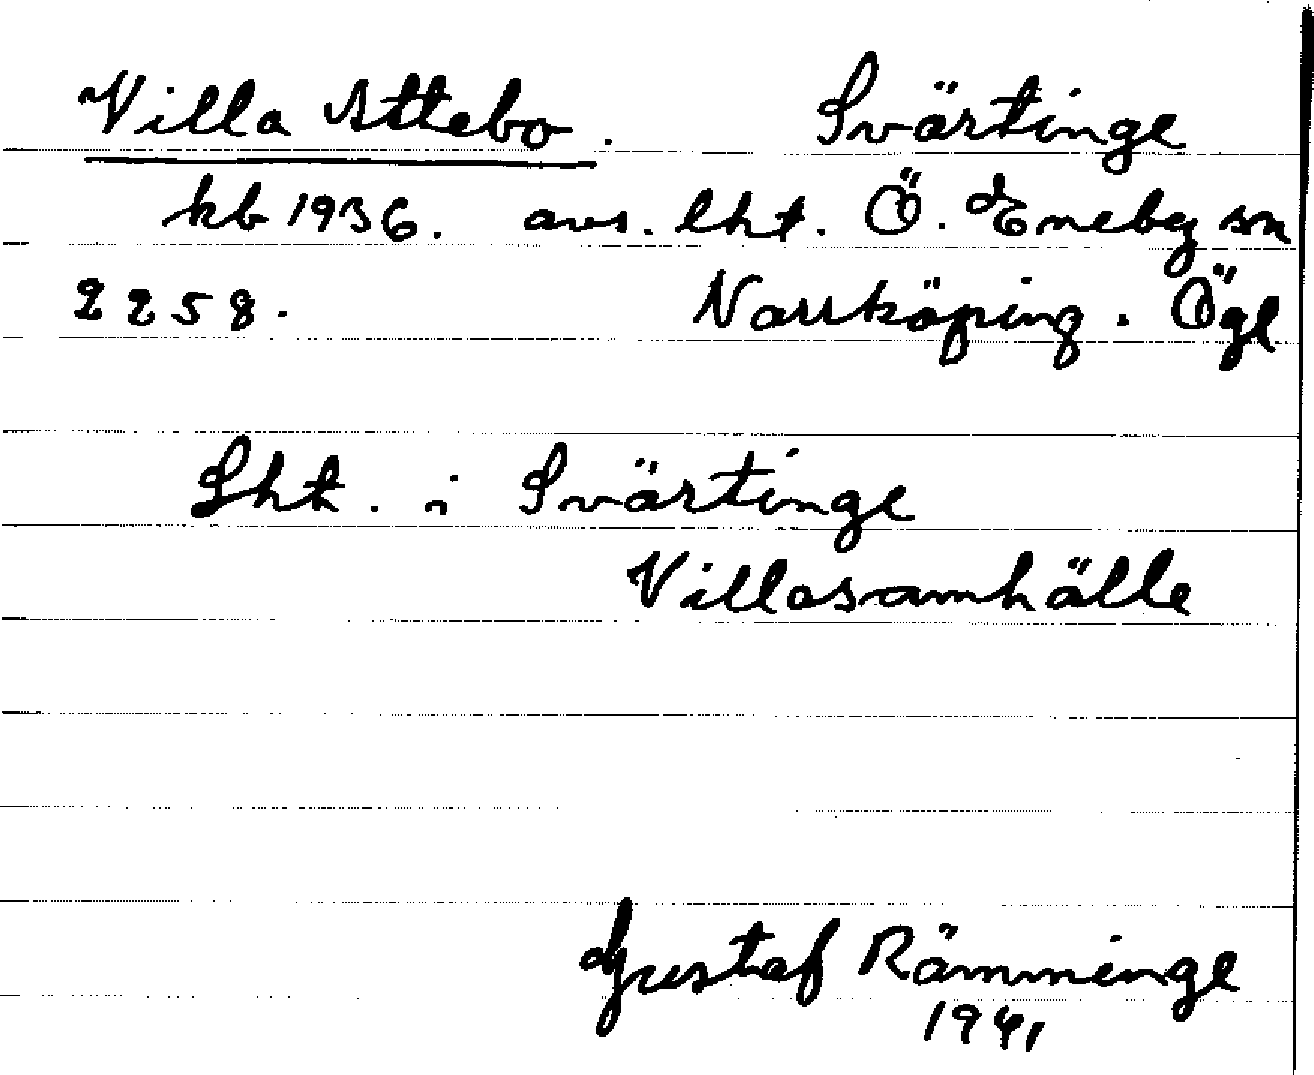 Villa Attebo. Svärtinge
kb 1936. avs. lht. Ö. Eneby sn
2258. Norrköping. Ögl
Lht. i Svärtinge
Villasamhälle
Gustaf Rämminge
1941